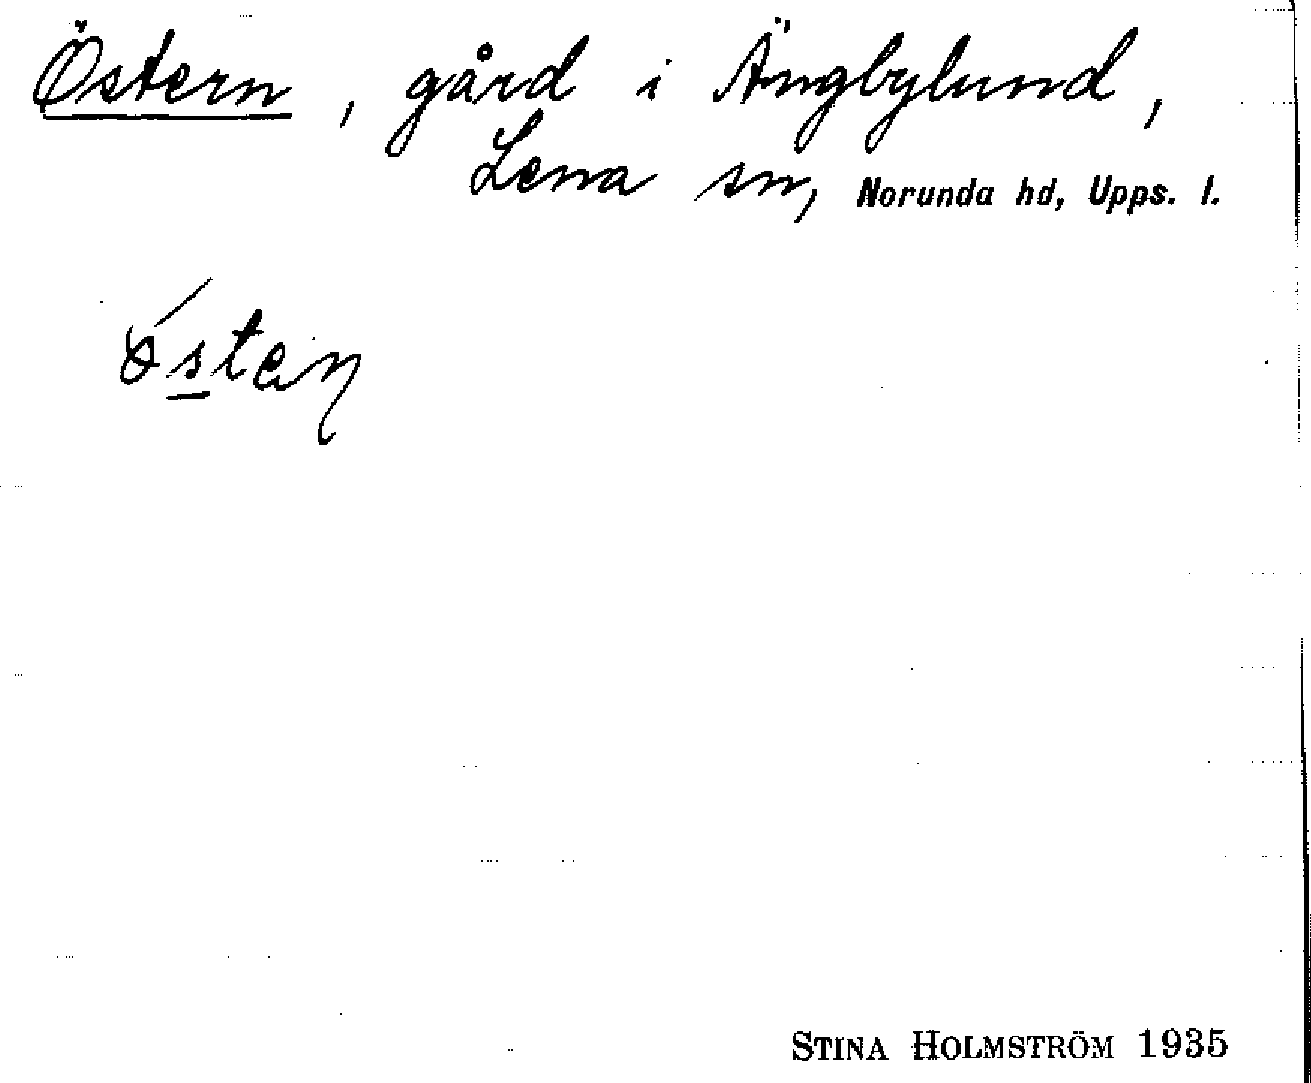 Östern, gård i Ängbylund,
Lena sn, Norunda hd, Upps. l.
STINA HOLMSTRÖM 1935